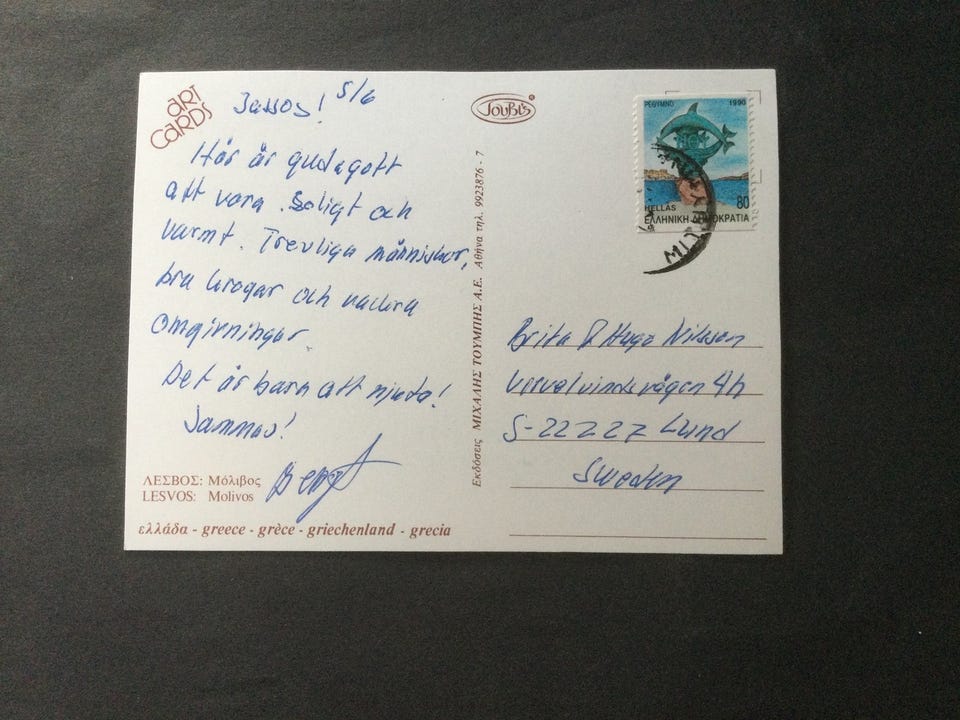 ART
CARDS
Jassos! 5/6
Här är gudagott
att vara. Soligt och
varmt. Trevliga människor,
bra krogar och vackra
omgivningar.
Det är bara att njuta!
Jammas!
Bengt
ΛΕΣΒΟΣ: Μόλιβος
LESVOS: Molivos
ελλάδα - greece - grèce - griechenland - grecia
Εκδόσεις ΜΙΧΑΛΗΣ ΤΟΥΜΠΗΣ Α.Ε. Αθήνα τηλ. 9923876 - 7
ToUBi's
ΡΕΘΥΜΝΟ 1990
80
HELLAS
ΕΛΛΗΝΙΚΗ ΔΗΜΟΚΡΑΤΙΑ
Brita & Hugo Nilsson
4h
S-222 27 Lund
Sweden